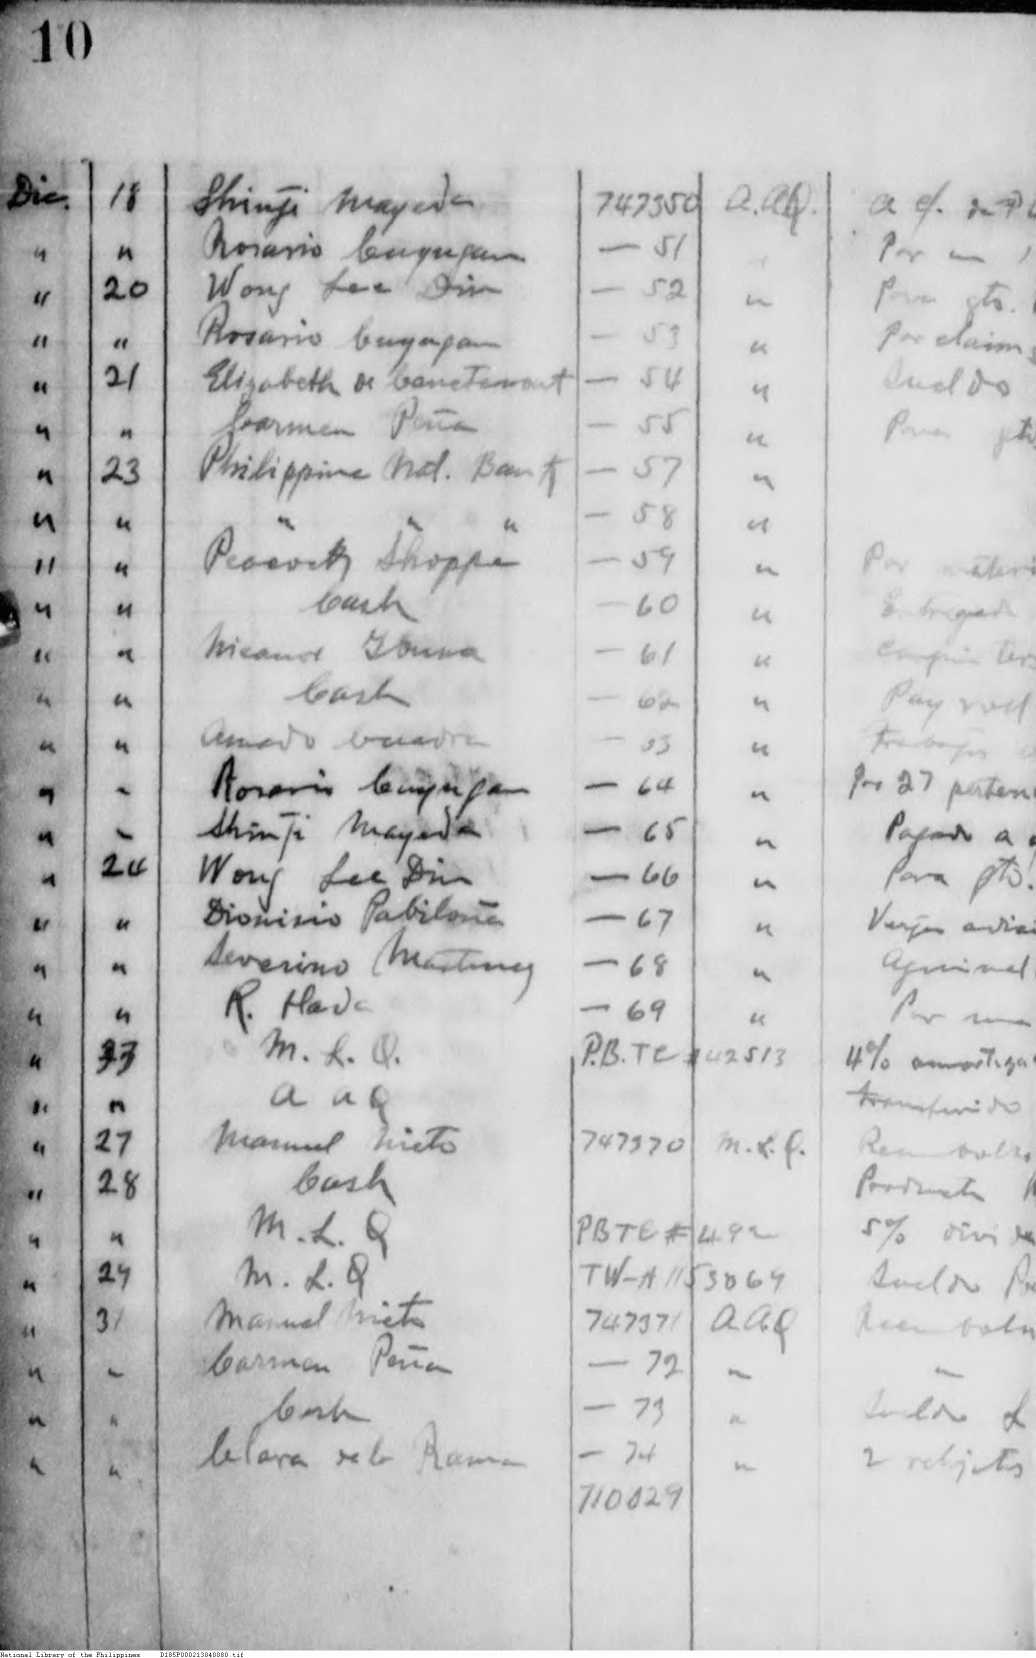 10
Dic. 18 Shinji Mayeda 747350 A.A.Q. a
" " Rosario — 51 Por un
" 20 Wong Lee Din — 52 " Para gts.
" " Rosario — 53 " Por claim
" 21 Elizabeth de — 54 " Sueldo
" " Carmen Peña — 55 " Para
" 23 Philippine Natl. Bank — 57 "
" " " " " — 58 "
" " Peacock Shoppe — 59 " Por
" " Cash — 60 " Entregado
" " Nicanor — 61 "
" " Cash — 62 " Pay roll
" " Amado — 63 "
" - Rosario — 64 " Por 27
" - Shinji Mayeda — 65 " Pagado a
" 24 Wong Lee Din — 66 " Para gts.
" " Dionisio Pabiloña — 67 "
" " Severino Martinez — 68 " Aguinal
" " R. Hada — 69 " Por una
" M. L. Q. P.B.TC #42513 4% amortiza
" " A A Q transferido
" 27 Manuel Nieto 747370 M.L.Q. Reembolso
" 28 Cash Producto
" " M. L. Q PBTC # 492 5% divide
" 29 M. L. Q TW-A 1153069 Sueldo
" 31 Manuel Nieto 747371 A.A.Q Reembolso
" - Carmen Peña — 72 " "
" " Cash — 73 " Sueldo
" " Clara de la Rama — 74 " 2
710029
National Library of the Philippines D185P000213040080.tif